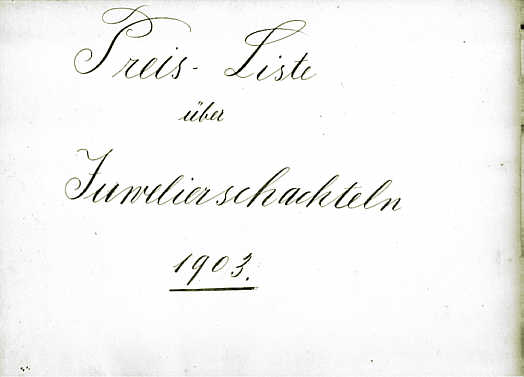 Preis- Liste
über
Juwelierschachteln
1903.